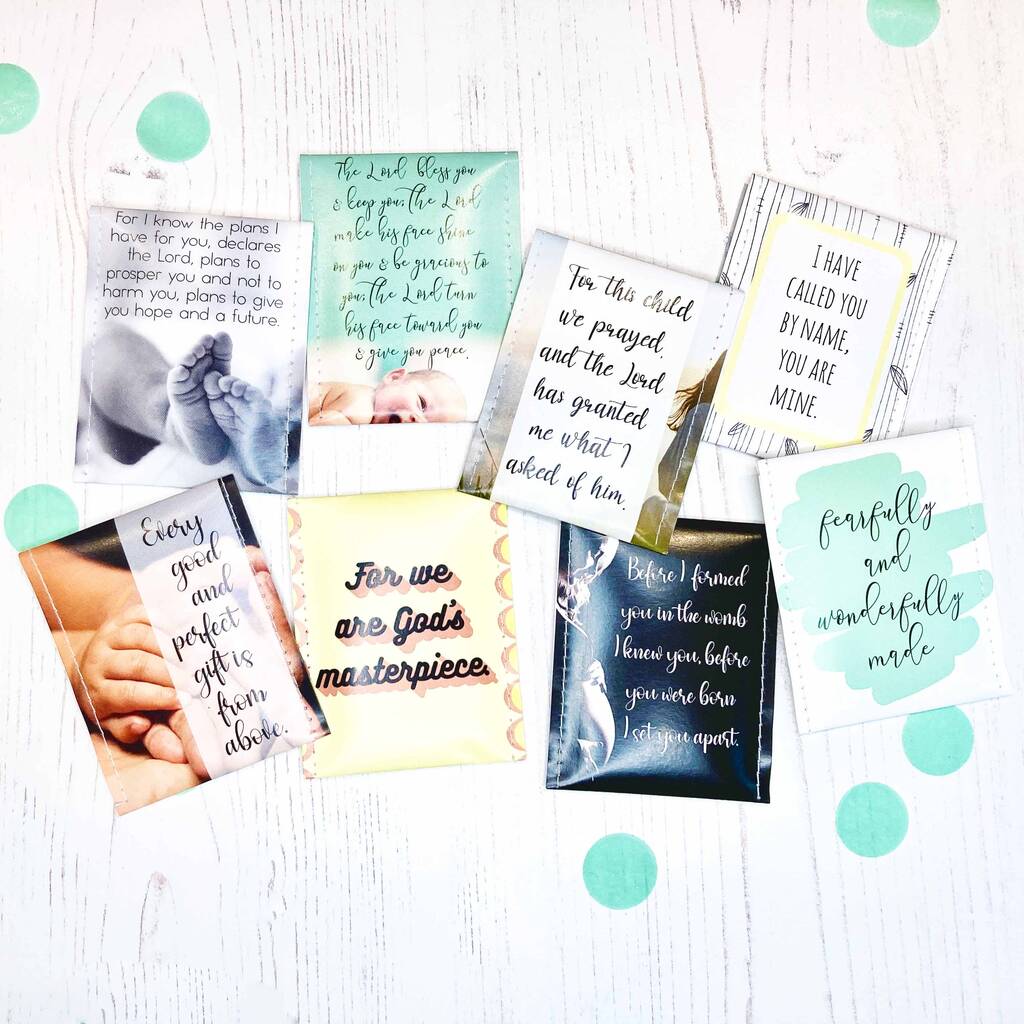 For I know the plans I
have for you, declares
the Lord, plans to
prosper you and not to
harm you, plans to give
you hope and a future.
The Lord bless you
& keep you; The Lord
make his face shine
on you & be gracious to
you; The Lord turn
his face toward you
& give you peace.
For this child
we prayed,
and the Lord
has granted
me what I
asked of him.
I HAVE
CALLED YOU
BY NAME,
YOU ARE
MINE.
Every
good
and
perfect
gift is
from
above.
For we
are God's
masterpiece.
Before I formed
you in the womb
I knew you, before
you were born
I set you apart.
fearfully
and
wonderfully
made